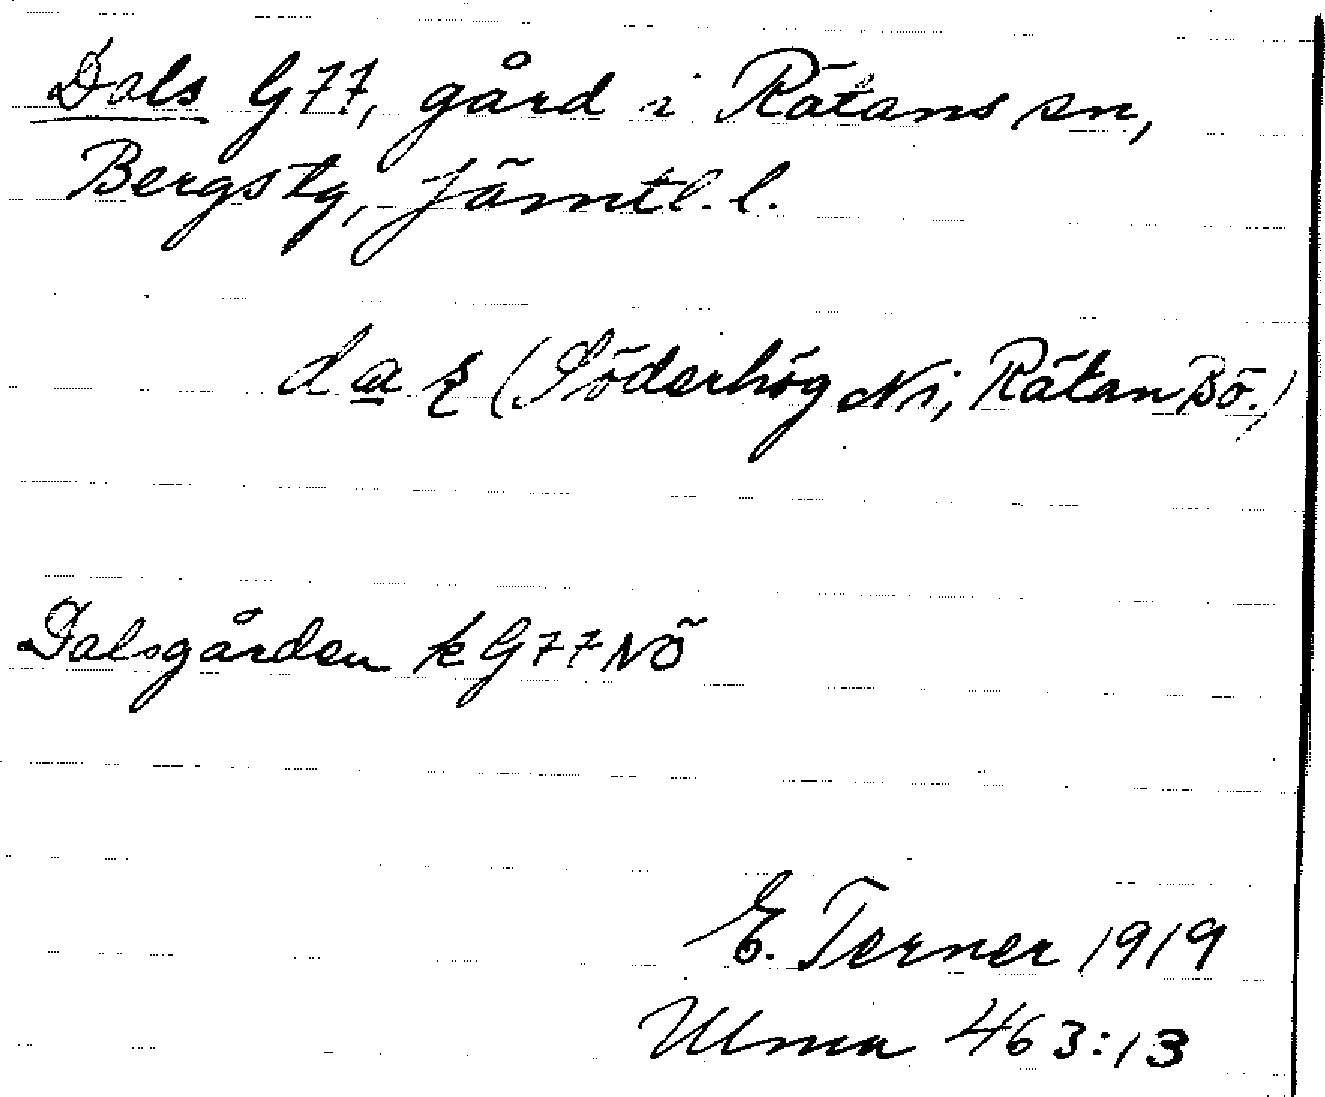 Dals G77, gård i Rätans sn,
Bergs tg, Jämtl. l.
(Söderhög Ni, Rätan Bö.)
Dalsgården k G77NÖ
E. Terner 1919
Ulma 463:13